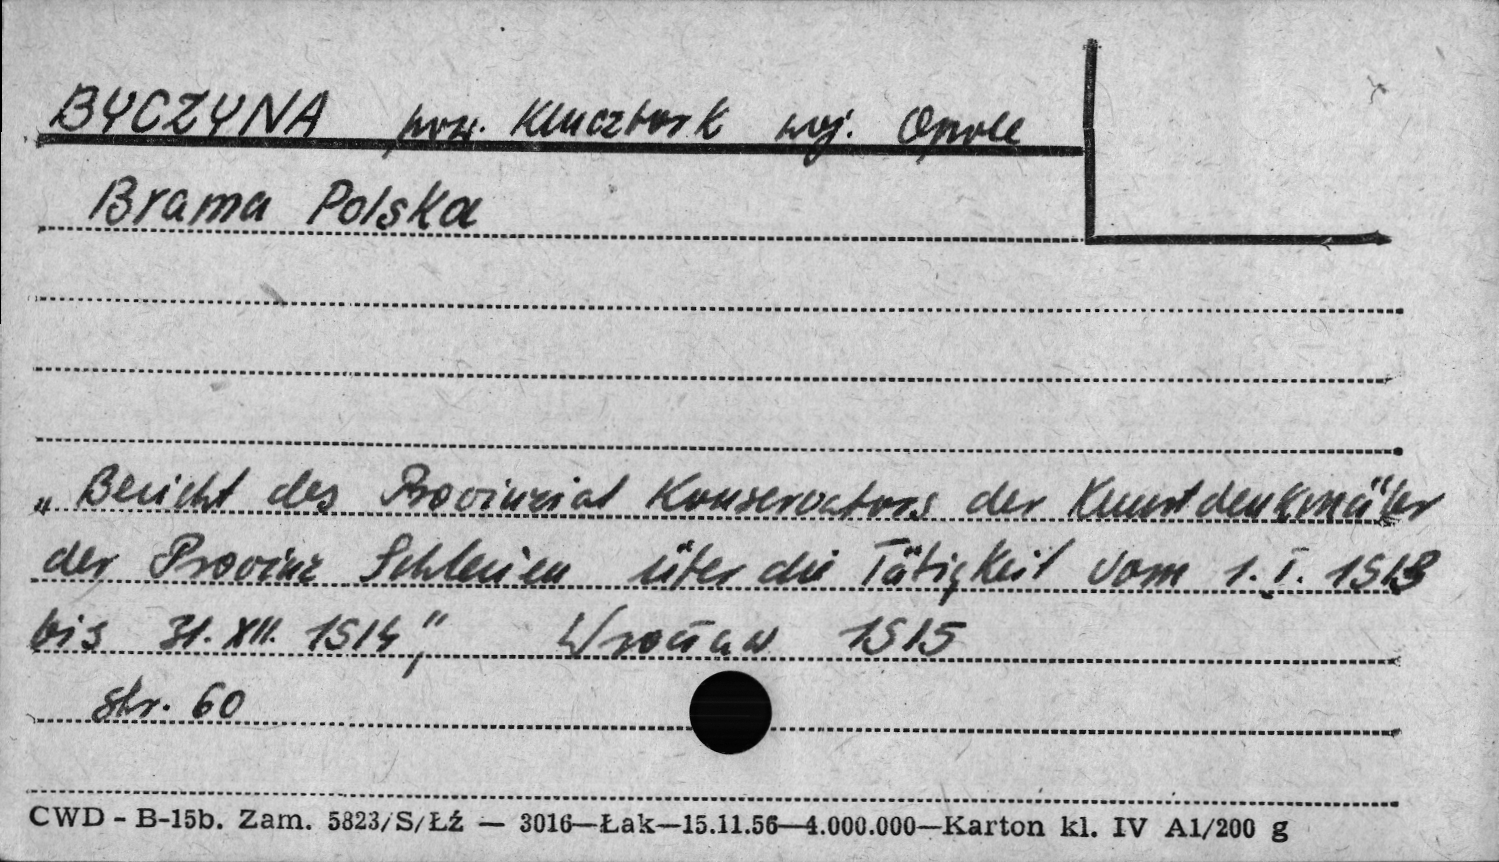 BYCZYNA pow. Kluczbork woj. Opole
Brama Polska
„Bericht des Provinzial Konservators der Kunstdenkmäler
der Provinz Schlesien über die Tätigkeit vom 1. I. 1913
bis 31. XII. 1914", Wrocław 1915
str. 60
CWD - B-15b. Zam. 5823/S/Łź — 3016—Łak—15.11.56—4.000.000—Karton kl. IV A1/200 g